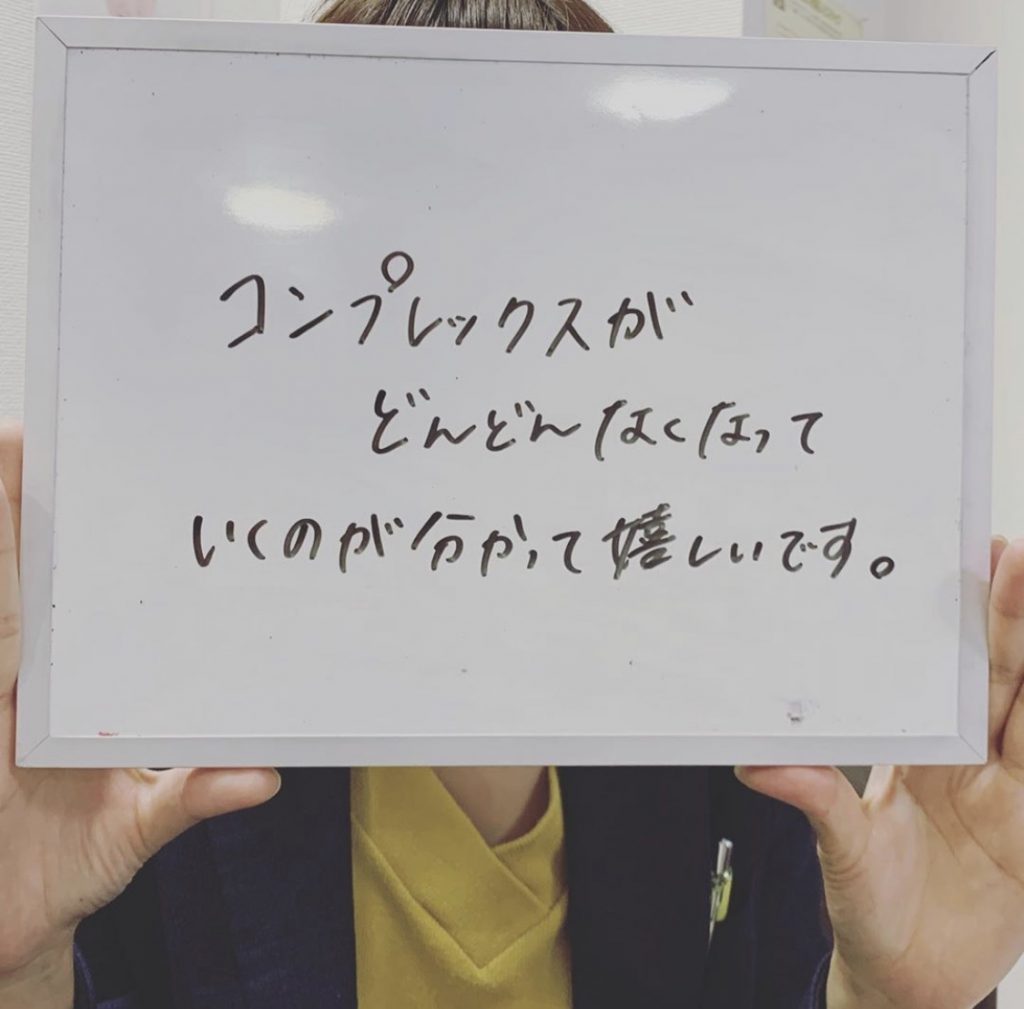 コンプレックスが
どんどんなくなって
いくのが分かって嬉しいです。